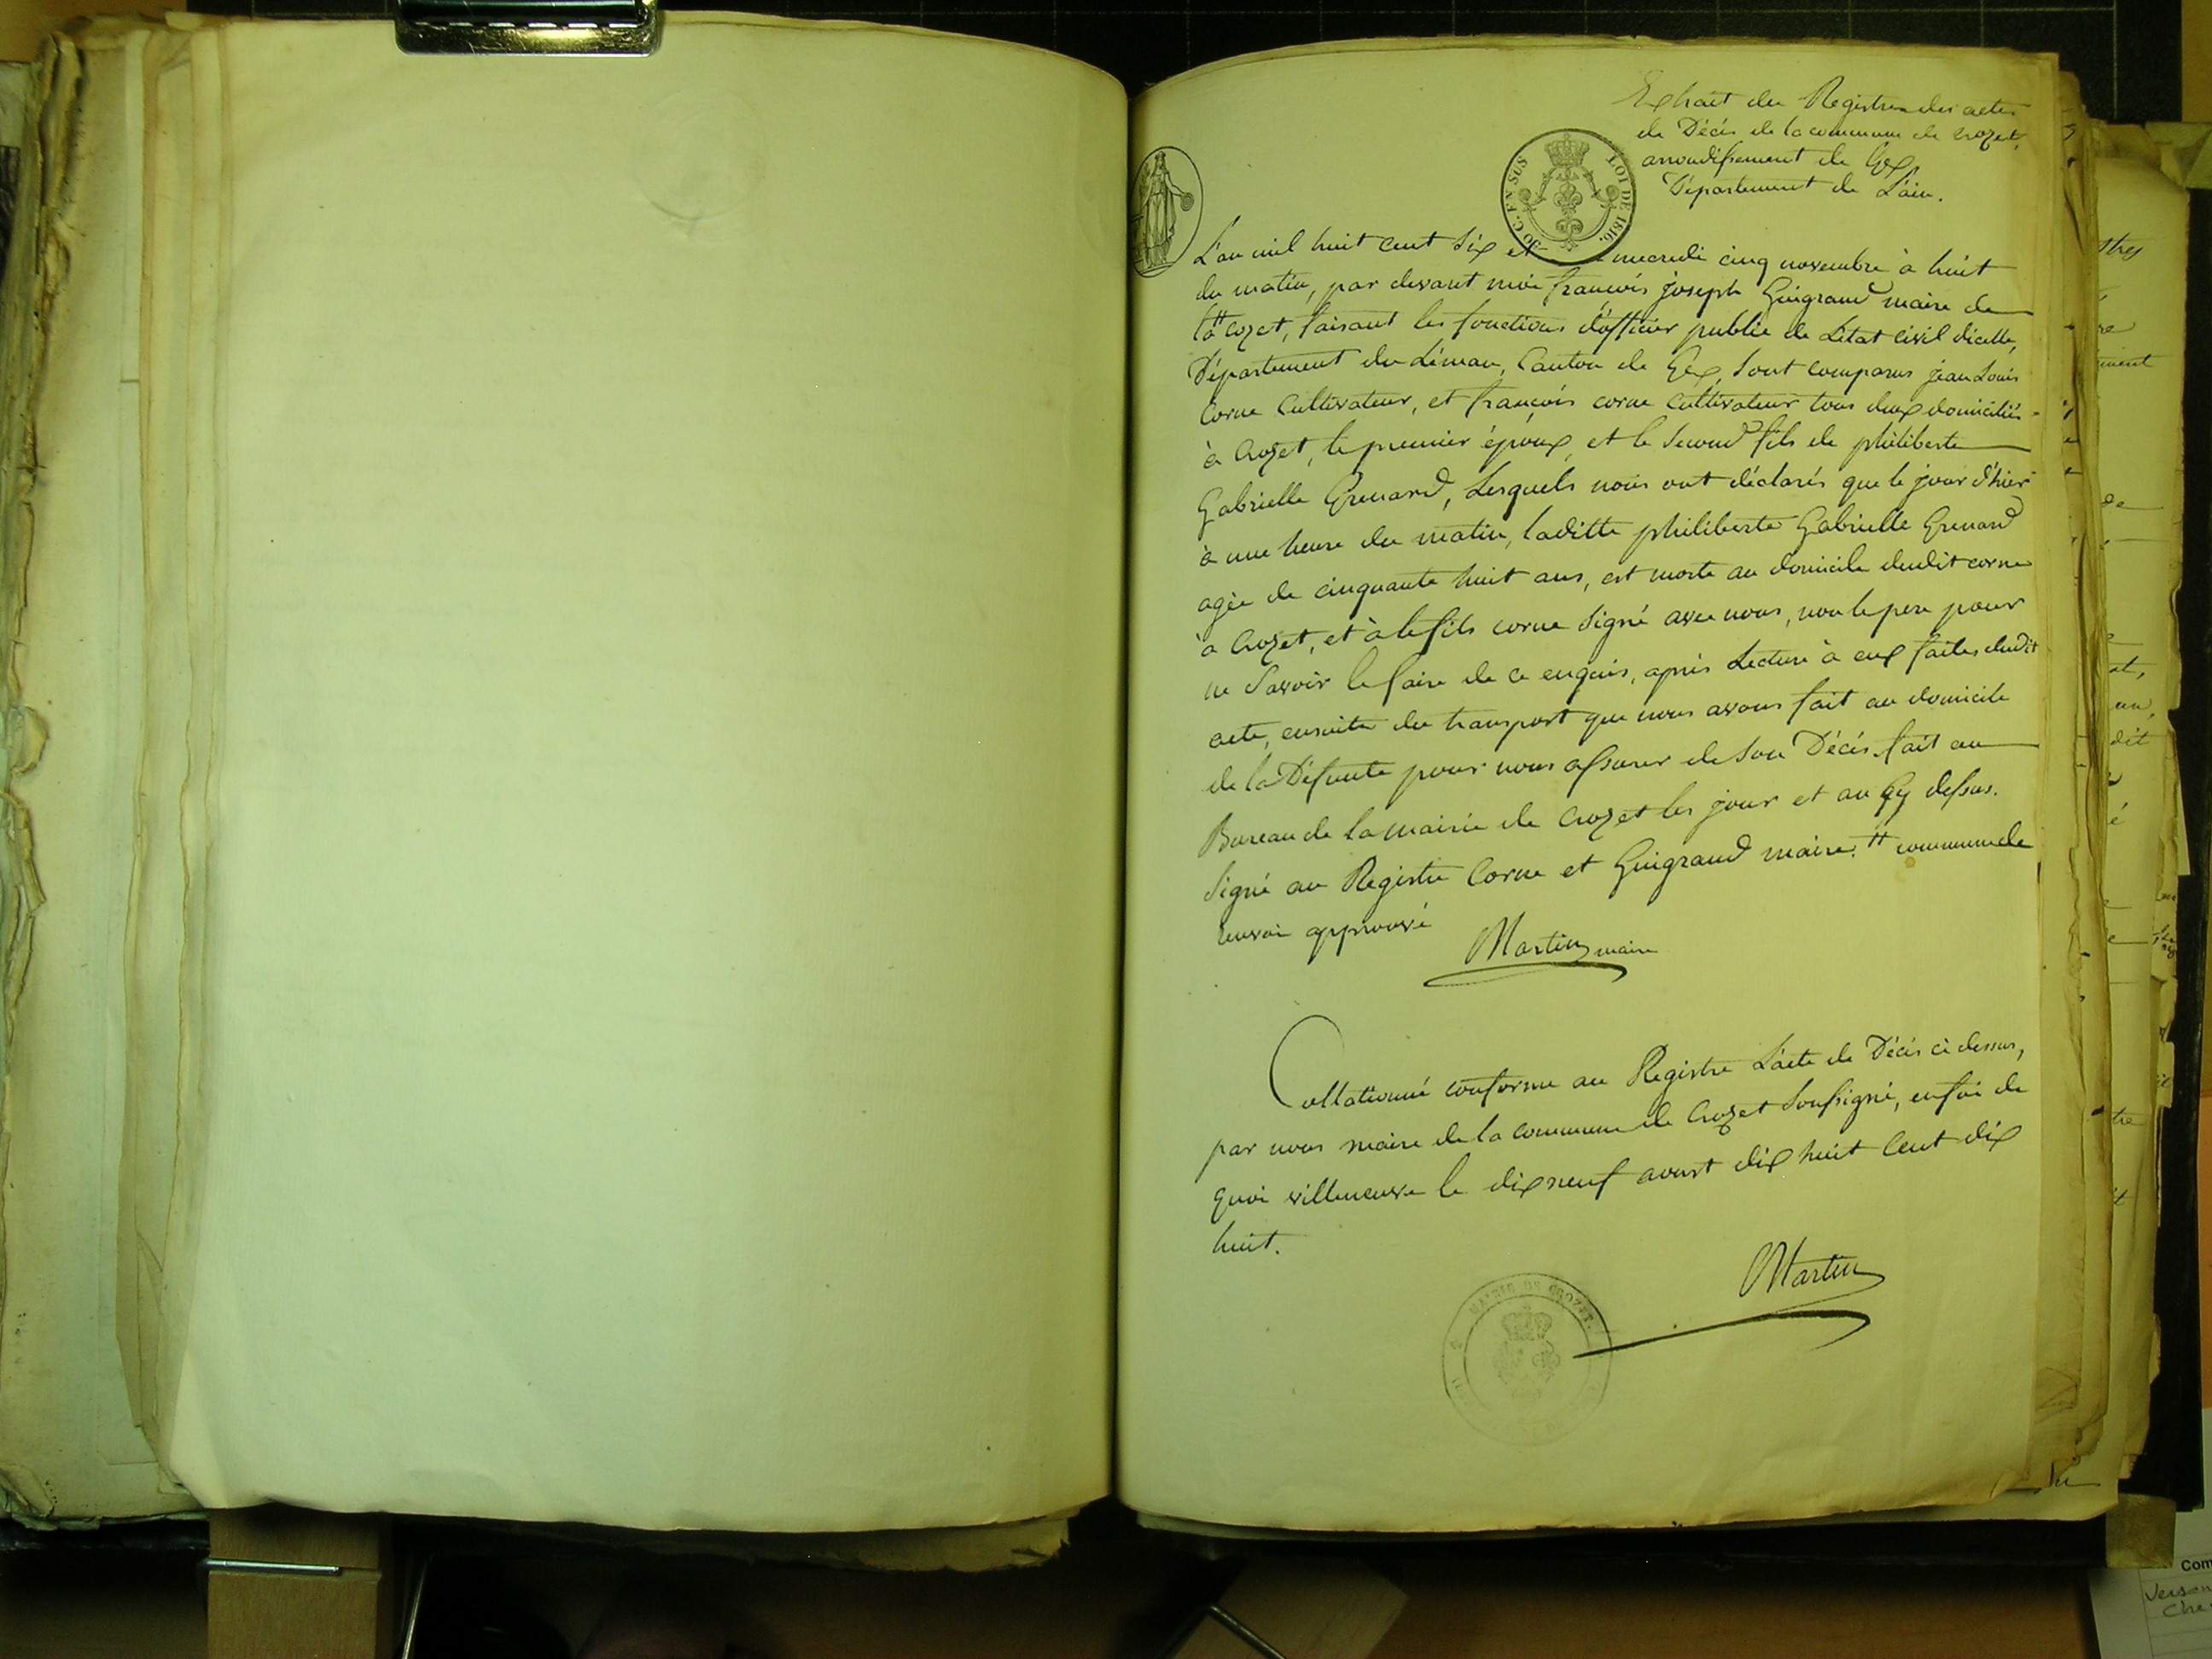 Extrait du Registre des actes
de Décés de la commune de Crozet,
arrondissement de Gex,
Département de L'ain.
LOI DE 1816.
C. EN SUS
L'an mil huit cent six et mercredi cinq novembre à huit
du matin, par devant moi françois joseph Guigrand maire de
la # cozet, faisant les fonctions d'officier public de L'état Civil dicelle,
Département du Léman, Canton de Gex, Sont comparus jean Louis
Corne Cultivateur, et françois corne Cultivateur tous deux domiciliés
à Crozet, le premier époux, et le Second fils de philiberte
Gabrielle Grenard, Lesquels nous ont déclarés que le jour d'hier
à une heure du matin, laditte philiberte Gabrielle Grenard
agée de cinquante huit ans, est morte au domicile dudit corne
à Crozet, et à le fils corne Signé avec nous, non le pere pour
ne Savoir le faire de ce enquis, après Lecture à eux faites dudit
acte, ensuite du transport que nous avons fait au domicile
de la Défunte pour nous assurer de Son Décés. fait au
Bureau de la mairie de Crozet les jour et an qy dessus.
Signé au Registre Corne et Guigrand maire. # commune de
renvoi approuvé
Martin maire
Collationné conforme au Registre L'acte de Décés ci dessus,
par nous maire de la commune de Crozet Soussigné, en foi de
quoi villeneuve le dix neuf aoust dix huit Cent dix
huit.
Martin
MAIRIE DE CROZET.